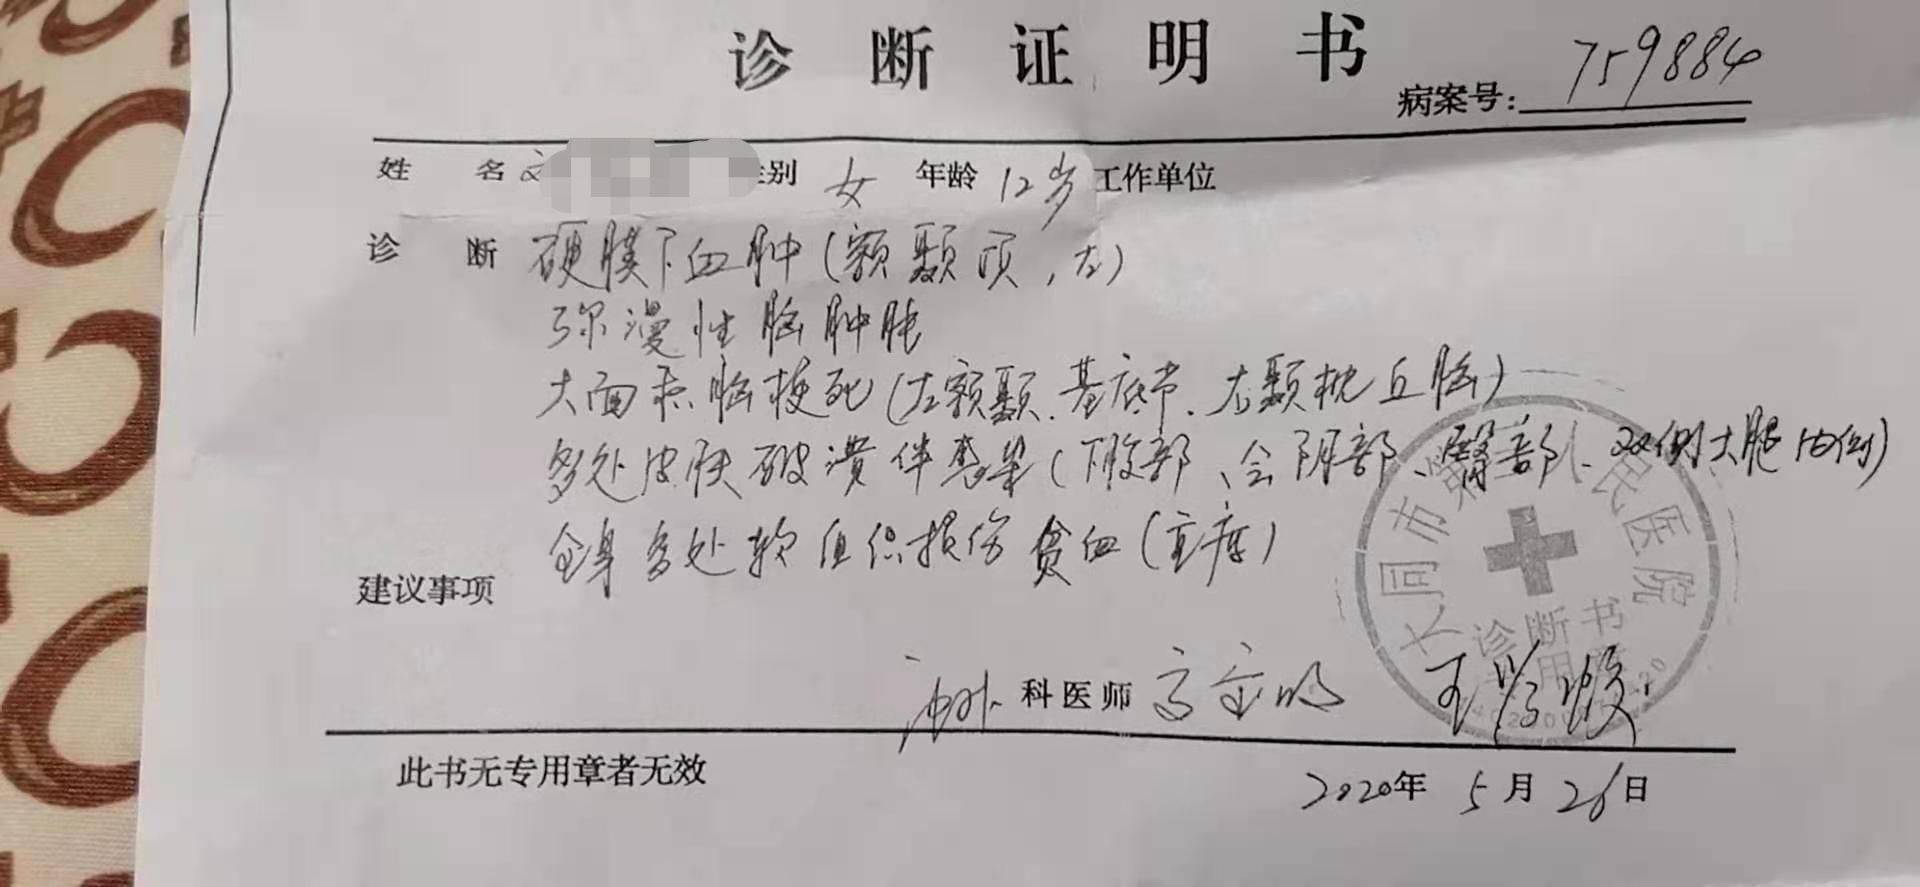 诊断证明书
病案号: 759884
姓名 性别 女 年龄 12岁 工作单位
诊断 硬膜下血肿(额颞顶,左)
弥漫性脑肿胀
大面积脑梗死(左额颞、基底节、右颞枕丘脑)
多处皮肤破溃伴感染(下腹部、会阴部、臀部、双侧大腿内侧)
全身多处软组织损伤 贫血(重度)
建议事项
大同市第 人民医院
诊断书
专用章
科医师
此书无专用章者无效
2020年5月26日